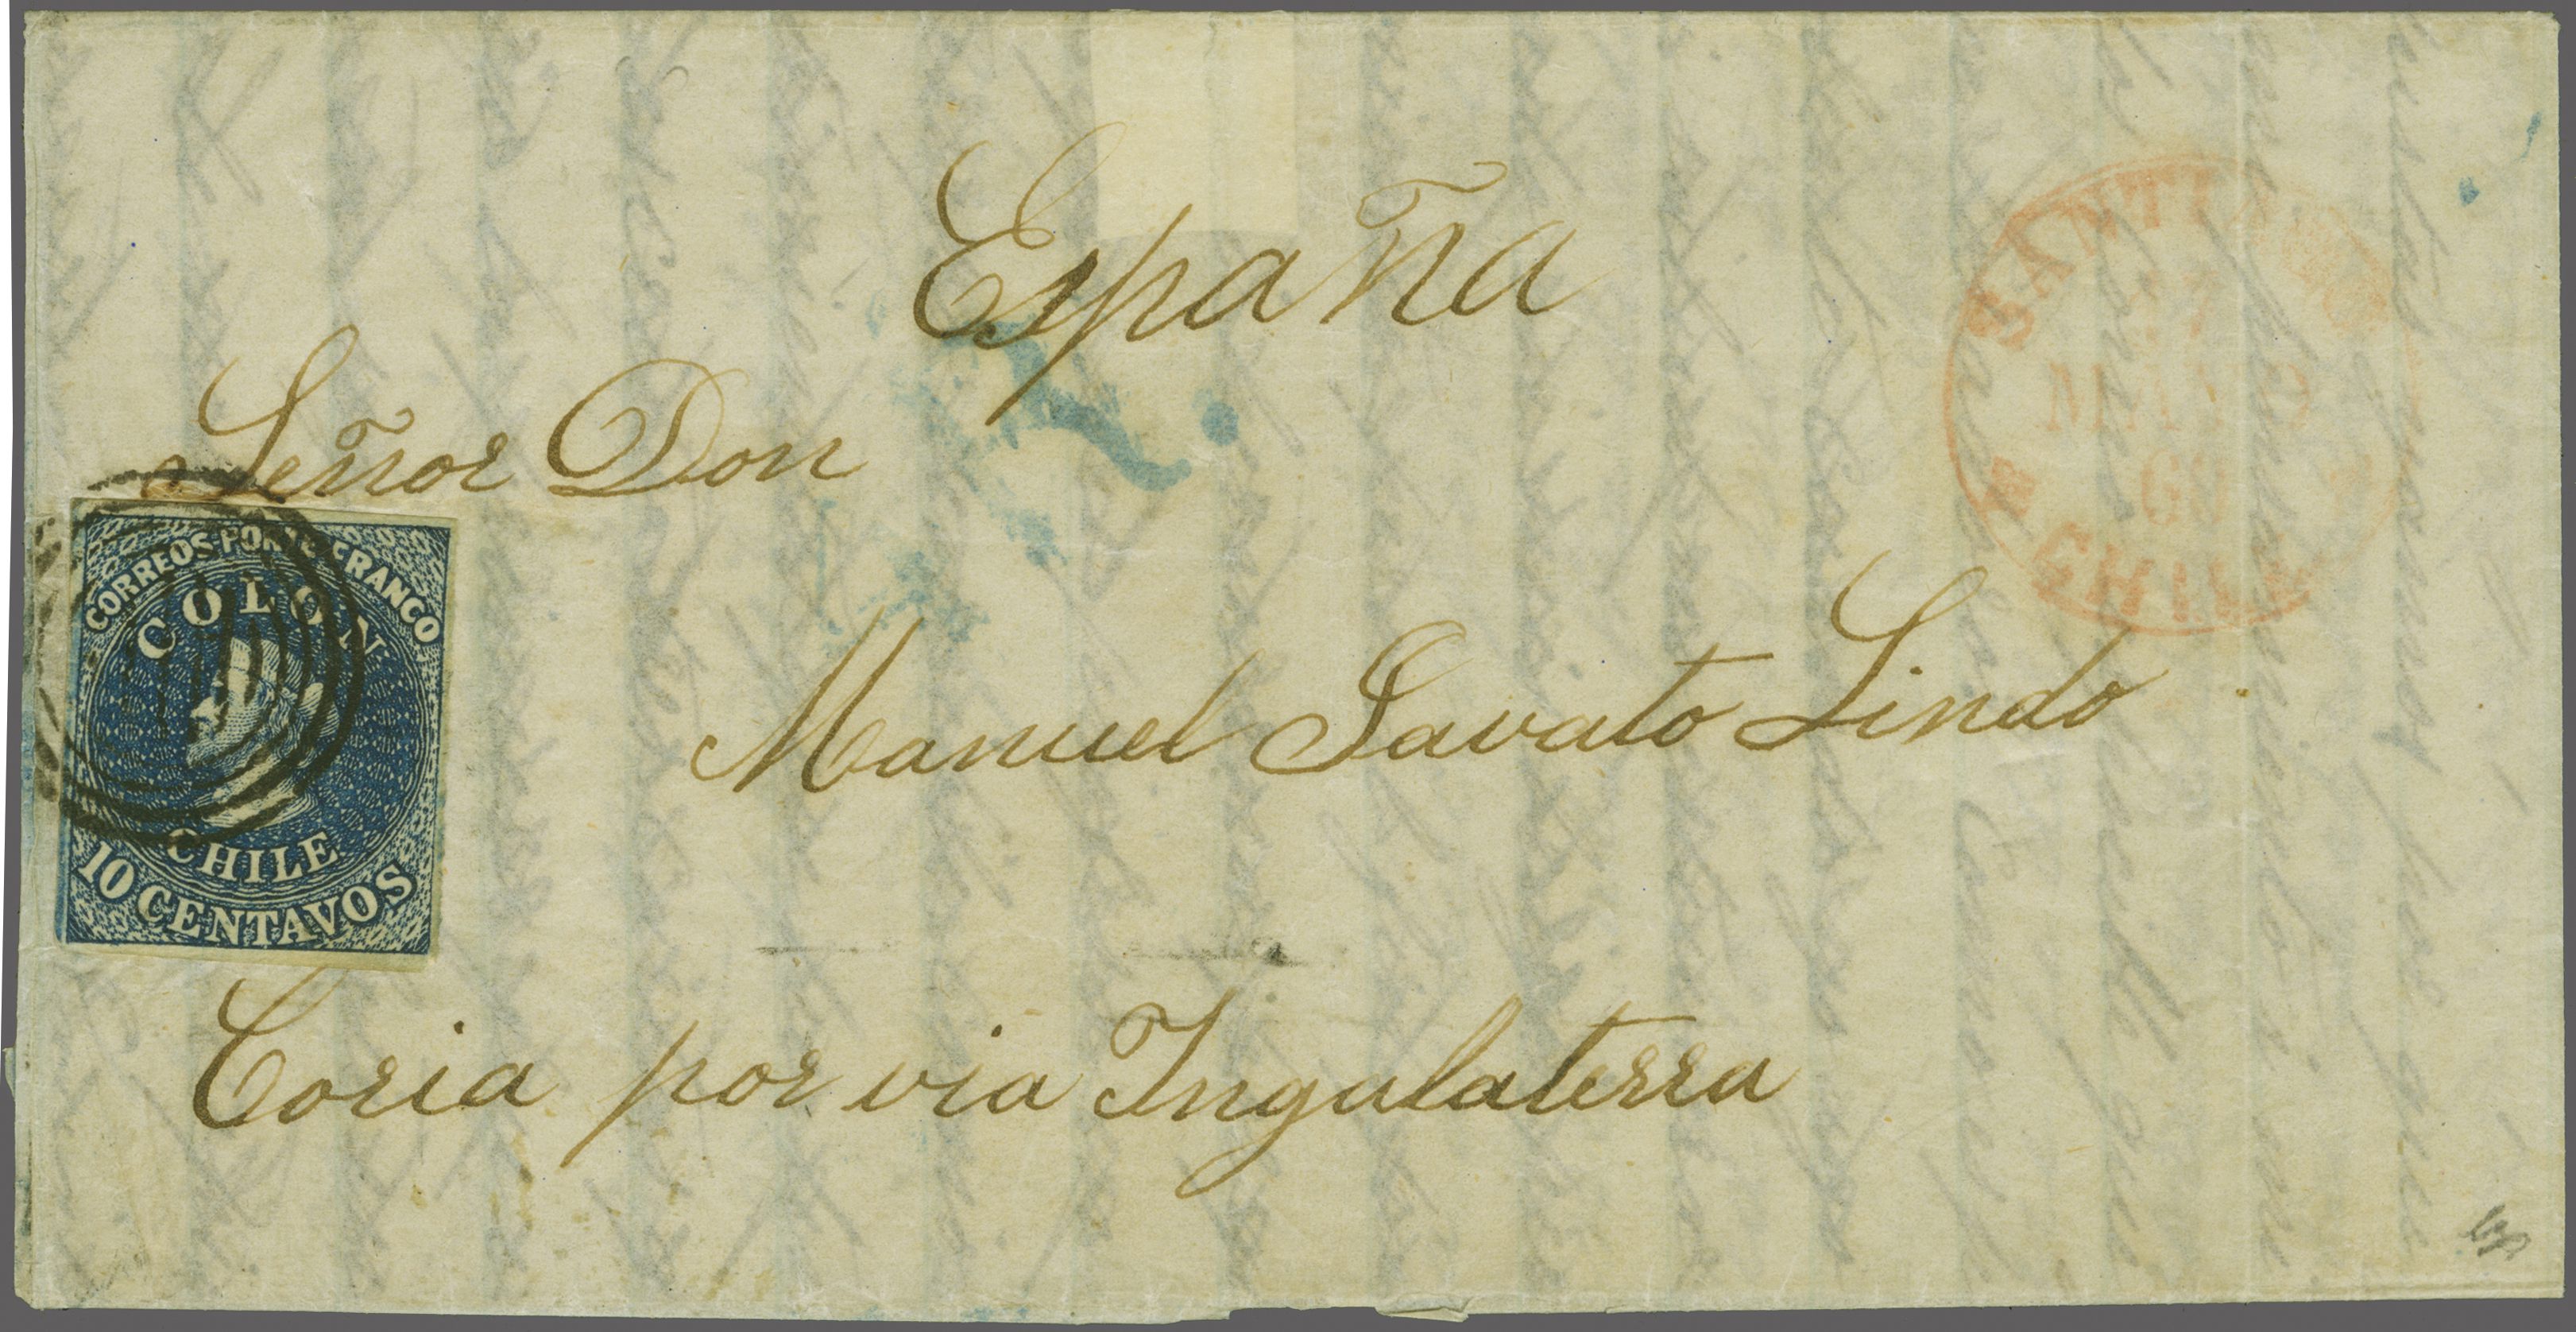 España
SANTIAGO
MAYO
CHILE
Señor Don
CORREOS PORTE FRANCO
COLON
CHILE
10 CENTAVOS
Manuel Savato Lindo
Coria por via Ingalaterra